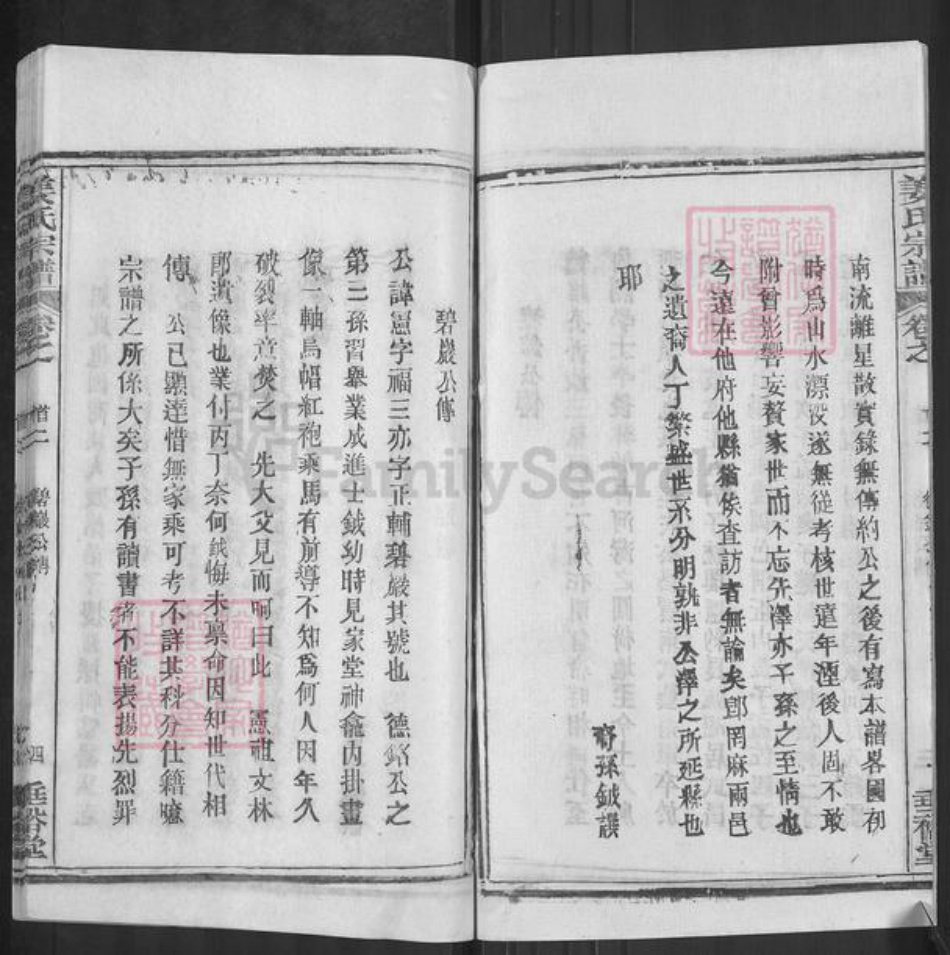 姜氏宗譜
卷之
南流離星散實錄無傳約公之後有寫本譜畧國初
時爲山水漂沒遂無從考核世遠年湮後人固不敢
附會影響妄贅家世而不忘先澤亦子孫之至情也
今遠在他府他縣猶俟查訪者無論矣卽罔麻兩邑
之遺裔人丁繁盛世系分明孰非公澤之所延緜也
耶
裔孫鉞譔
垂裕堂
碧巖公傳
公諱憲字福三亦字正輔碧巖其號也 德銘公之
第二孫習舉業成進士鉞幼時見家堂神龕内掛畫
像一軸烏帽紅袍乘馬有前導不知爲何人因年久
破裂率意焚之 先大父見而呵曰此 憲祖文林
郎遺像也業付丙丁奈何鉞悔未稟命因知世代相
傳 公已顯達惜無家乘可考不詳其科分仕籍噫
宗譜之所係大矣子孫有讀書 不能表揚先烈罪
姜氏宗譜
卷之
首二
碧巖公傳
四
垂裕堂
FamilySearch